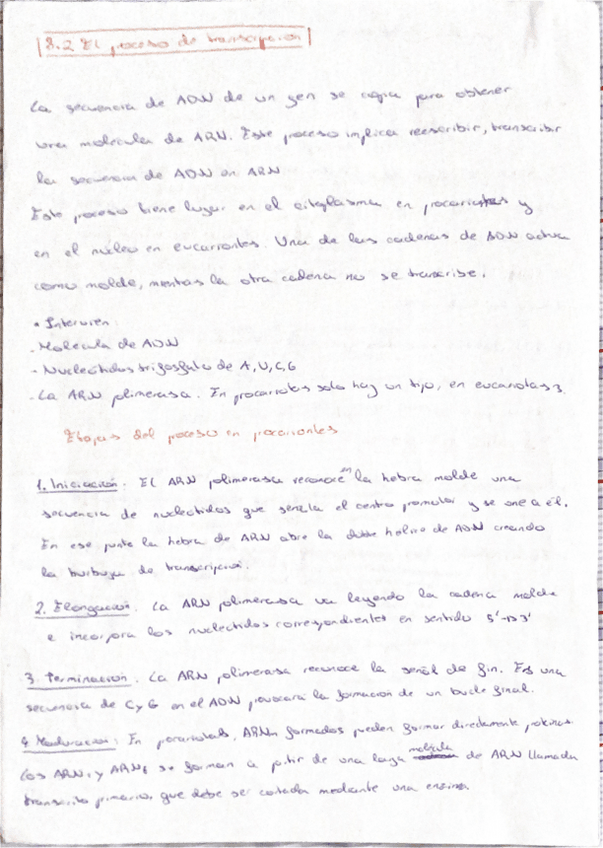 8.2 El proceso de transcripción
La secuencia de ADN de un gen se copia para obtener
una molécula de ARN. Este proceso implica reescribir, transcribir
la secuencia de ADN en ARN
Este proceso tiene lugar en el citoplasma en procariotas y
en el núcleo en eucariontes. Una de las cadenas de ADN actua
como molde, mientras la otra cadena no se transcribe.
• Intervien:
- Molecula de ADN
- Nucleótidos trifosfato de A, U, C, G
- La ARN plimerasa. En procariotas solo hay un tipo, en eucariotas 3.
Etapas del proceso en procariontes
1. Iniciación: El ARN polimerasa reconoce en la hebra molde una
secuencia de nucleotidos que señala el centro promotor y se une a él.
En ese punto la hebra de ARN abre la doble hélice de ADN creando
la burbuja de transcripción.
2. Elongación. La ARN polimerasa va leyendo la cadena molde
e incorpora los nucleótidos correspondientes en sentido 5'→3'
3. Terminación. La ARN polimerasa reconoce la señal de fin. Es una
secuencia de C y G en el ADN provocará la formación de un bucle final.
4 Maduracion: En procariotas, ARNm formados pueden formar directamente proteinas.
Los ARNr y ARNt se forman a partir de una larga molécula de ARN llamada
transcrito primario, que debe ser cortada mediante una enzima.